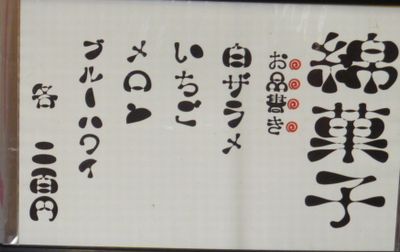 綿菓子
お品書き
白ザラメ
いちご
メロン
ブルーハワイ
各 二百円